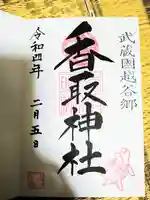 武蔵國越谷郷
香取神社
令和四年
二月五日